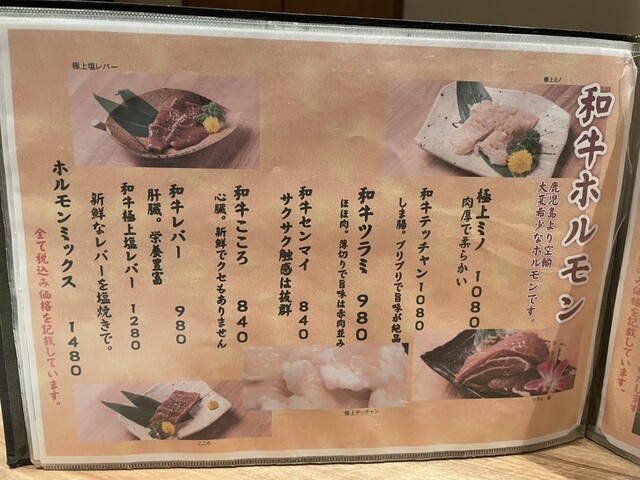 和牛ホルモン
鹿児島より空輸
大変希少なホルモンです。
極上ミノ 1080
肉厚で柔らかい
和牛テッチャン 1080
しま腸。プリプリで旨味が絶品
和牛ツラミ 980
ほほ肉。薄切りで旨味は赤肉並み
和牛センマイ 840
サクサク触感は抜群
和牛こころ 840
心臓。新鮮でクセもありません
和牛レバー 980
肝臓。栄養豊富
和牛極上塩レバー 1280
新鮮なレバーを塩焼きで。
ホルモンミックス 1480
全て税込み価格を記載しています。
極上塩レバー
極上ミノ
こころ
極上テッチャン